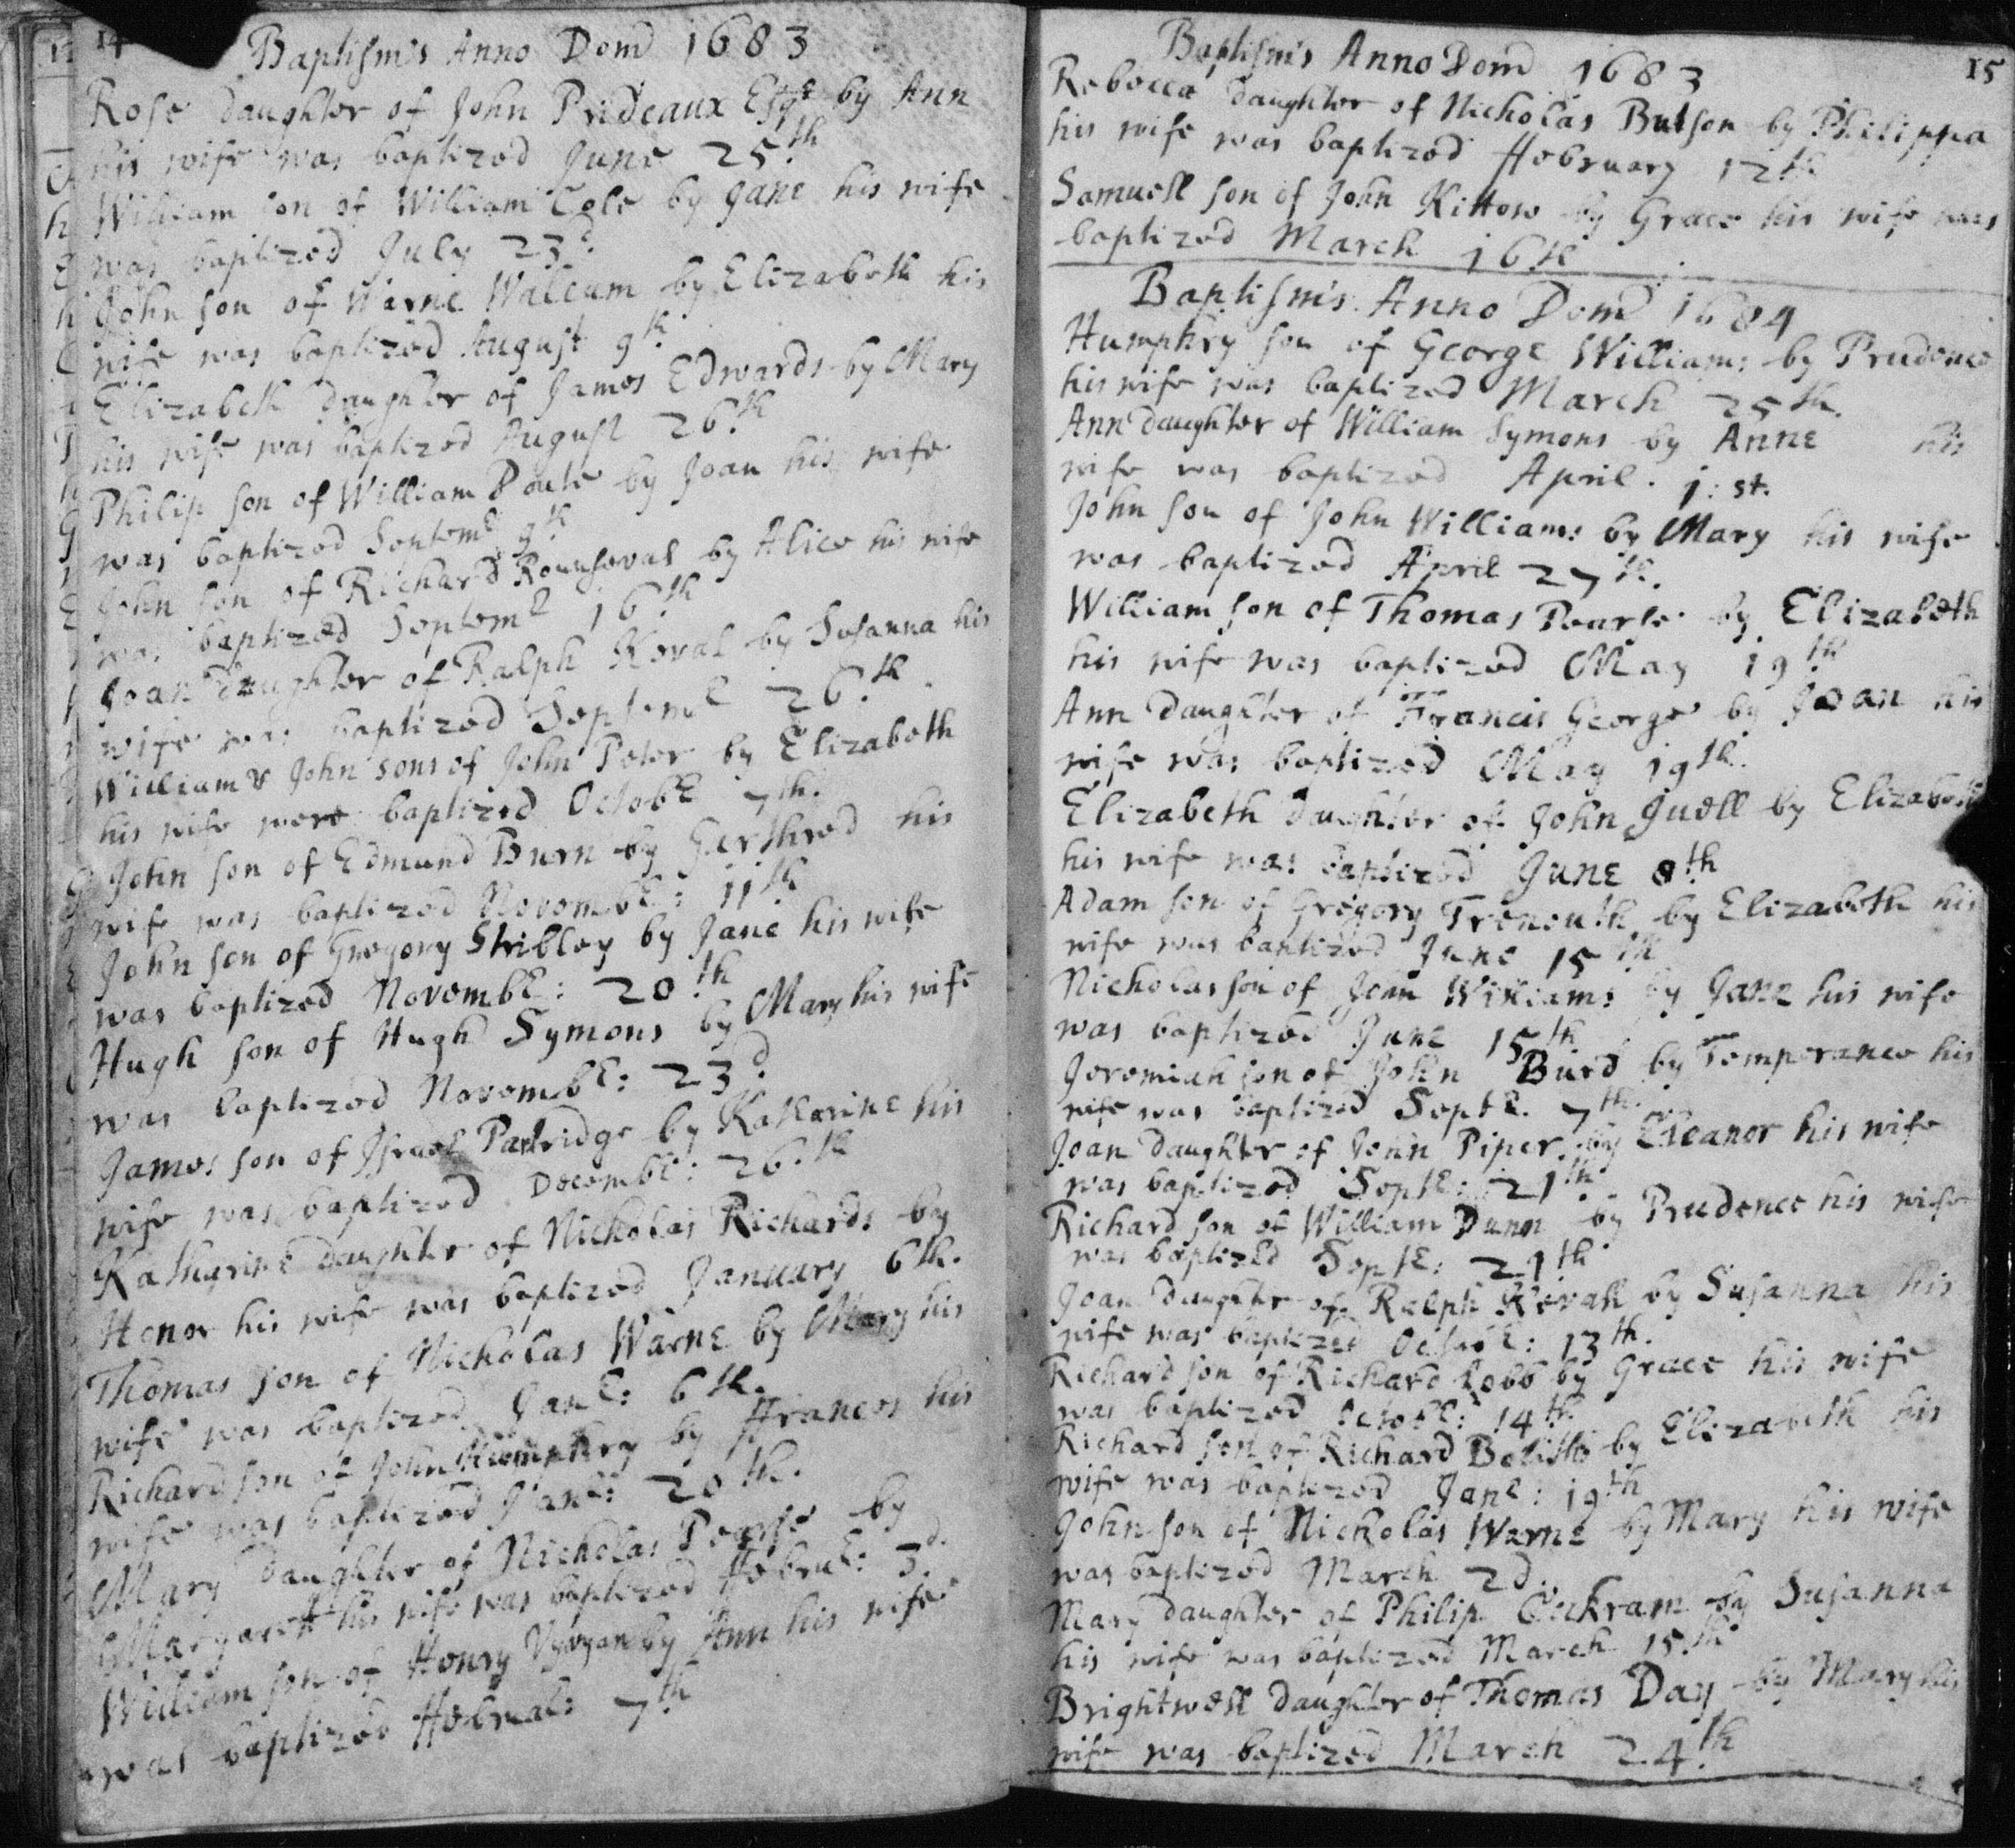 14
Baptisms Anno Dom 1683
Rose daughter of John Prideaux Esqr by Ann
his wife was baptized June 25th
William son of William Cole by Jane his wife
was baptized July 23d
John son of Warne Wallcum by Elizabeth his
wife was baptized August 9th
Elizabeth daughter of James Edwards by Mary
his wife was baptized August 26th
Philip son of William Poule by Joan his wife
was baptized Septemr 9th
John son of Richard Rounseval by Alice his wife
was baptized Septemr 16th
Joan daughter of Ralph Keval by Susanna his
wife was baptized Septemr 26th
William & John sons of John Peter by Elizabeth
his wife were baptized Octobr 7th.
John son of Edmund Burn by Gerthred his
wife was baptized Novembr: 11th
John son of Gregory Stribley by Jane his wife
was baptized Novembr: 20th
Hugh son of Hugh Symons by Mary his wife
was baptized Novembr: 23d
James son of Israel Partridge by Katharine his
wife was baptized Decembr: 26th
Katharine daughter of Nicholas Richards by
Honor his wife was baptized January 6th.
Thomas son of Nicholas Warne by Mary his
wife was baptized Janr: 6th.
Richard son of John Humphry by ffrances his
wife was baptized Janr: 20th.
Mary daughter of Nicholas Pearse by
Margarett his wife was baptized ffebrur: 3d.
William son of Henry Vyvyan by Ann his wife
was baptized ffebruar: 7th
15
Baptisms Anno Dom 1683
Rebecca daughter of Nicholas Butson by Philippa
his wife was baptized ffebruary 12th
Samuell son of John Kittow by Grace his wife was
baptized March 16th
Baptisms Anno Dom 1684
Humphry son of George Williams by Prudence
his wife was baptized March 25th.
Ann daughter of William Symons by Anne his
wife was baptized April. 1:st.
John son of John Williams by Mary his wife
was baptized April 27th.
William son of Thomas Pearse by Elizabeth
his wife was baptized May 19th
Ann daughter of Francis George by Joan his
wife was baptized May 19th.
Elizabeth daughter of John Juell by Elizabeth
his wife was baptized June 8th
Adam son of Gregory Trenouth by Elizabeth his
wife was baptized June 15th
Nicholas son of John Williams by Jane his wife
was baptized June 15th
Jeremiah son of John Buird by Temperance his
wife was baptized Septr. 7th.
Joan daughter of John Piper by Eleanor his wife
was baptized Septr: 21th
Richard son of William Dunn by Prudence his wife
was baptized Septr: 21th
Joan daughter of Ralph Kevall by Susanna his
wife was baptized Octobr: 13th.
Richard son of Richard Cobb by Grace his wife
was baptized Octobr: 14th
Richard son of Richard by Elizabeth his
wife was baptized Janr: 19th
John son of Nicholas Warne by Mary his wife
was baptized March 2d.
Mary daughter of Philip Cockram by Susanna
his wife was baptized March 15th
Brightwell daughter of Thomas Day by Mary his
wife was baptized March 24th